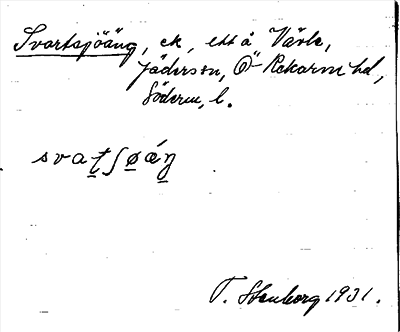 Svartsjöäng, ek, ett å Väsle,
Jäderson, Ö- Rekarne hd,
Söderm, l.
svat̲ʃø̲ǽŋ̲
T. Stenborg 1931.